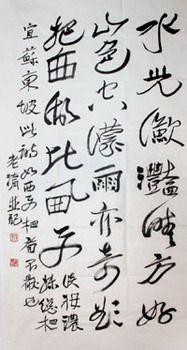 水光瀲灩晴方好
山色空濛雨亦奇欲
把西湖比西子
淡妝濃
抹總相
宜蘇東坡此詩如西子相看不厭也